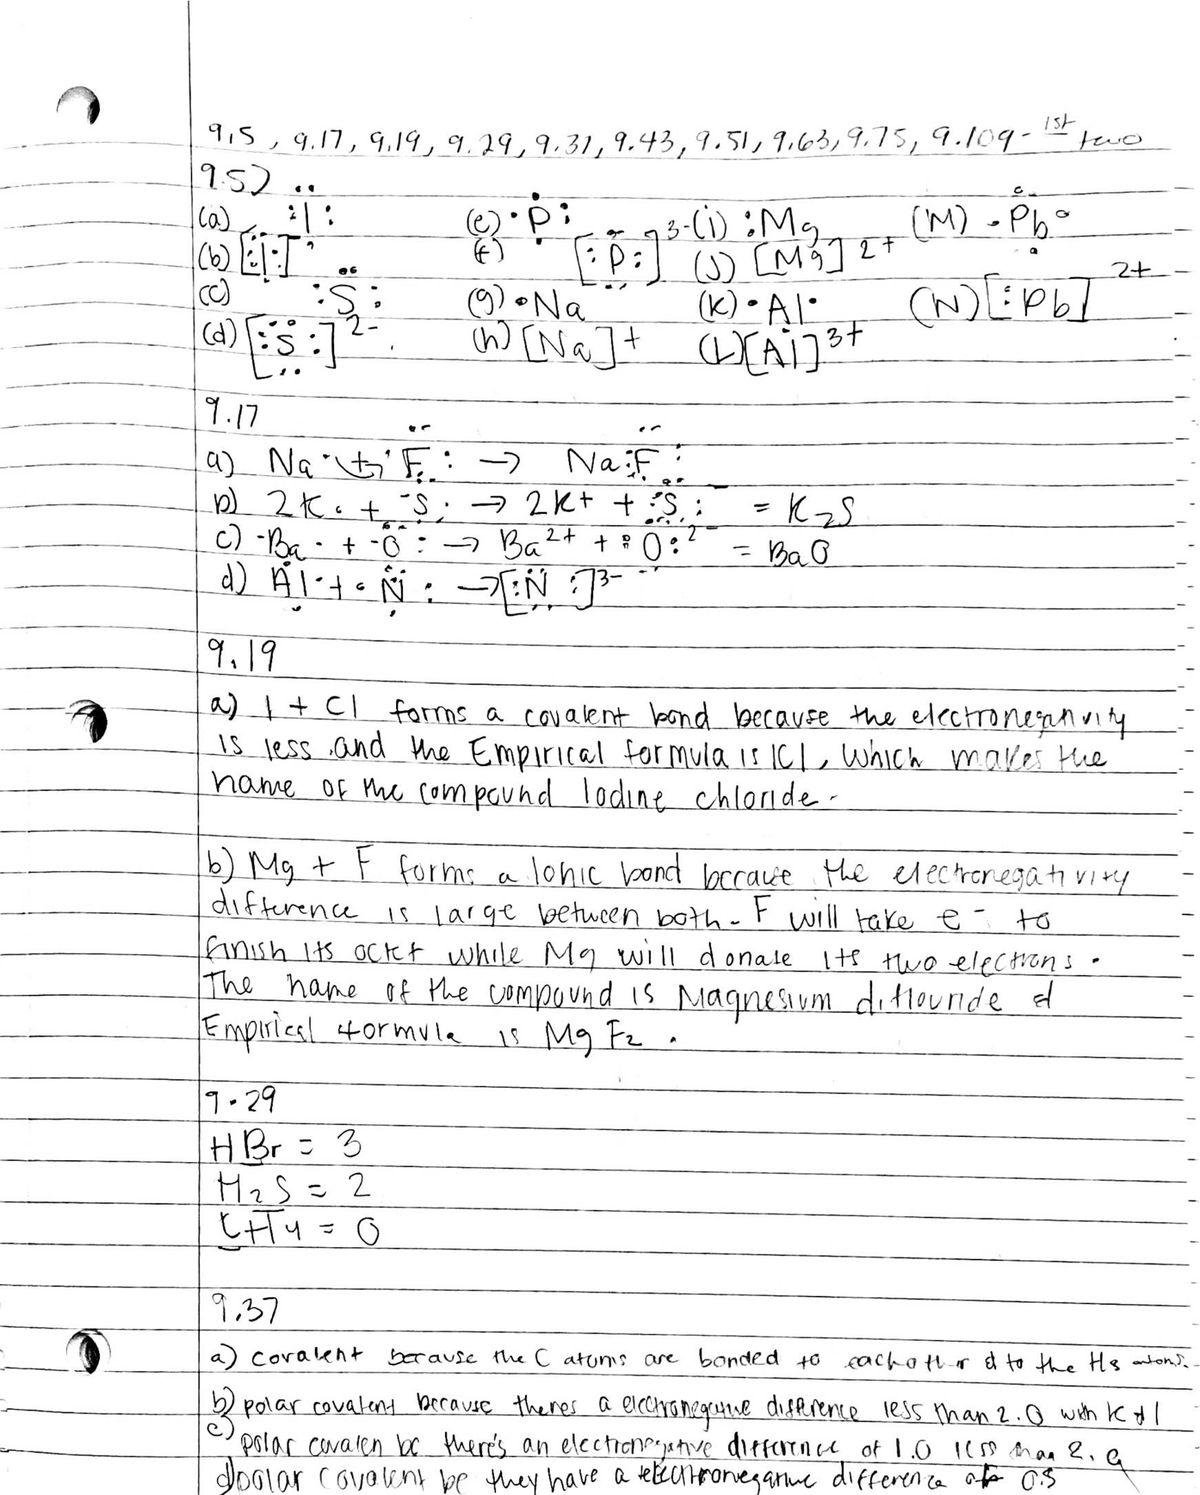 9.5, 9.17, 9.19, 9.29, 9.37, 9.43, 9.51, 9.63, 9.75, 9.109 - 1st two
9.5)
(a) :I: (e) ·P: (i) :Mg (M) ·Pb·
(b) [:I:]- (f) [:P:]3- (J) [Mg]2+
(c) :S: (g) ·Na (K) ·Al· (N) [:Pb]2+
(d) [:S:]2- (h) [Na]+ (L) [Al]3+
9.17
a) Na· + ·F: → Na:F:
b) 2K· + ·S: → 2K+ + :S: = K2S
c) ·Ba· + ·O: → Ba2+ + :O:2- = BaO
d) Al· + ·N: → [:N:]3-
9.19
a) I + Cl forms a covalent bond because the electronegativity
is less and the Empirical formula is ICl, which makes the
name of the compound Iodine chloride.
b) Mg + F forms a Ionic bond because the electronegativity
difference is large between both. F will take e- to
finish its octet while Mg will donate its two electrons.
The name of the compound is Magnesium diflouride &
Empirical formula is MgF2.
9.29
HBr = 3
H2S = 2
CH4 = 0
9.37
a) covalent because the C atoms are bonded to each other & to the Hs atoms.
b) polar covalent because theres a electronegative difference less than 2.0 with K & I
c) polar covalen bc there's an electronegative difference of 1.0 less than 2.0
d) polar covalent bc they have a electronegative difference of 0.5